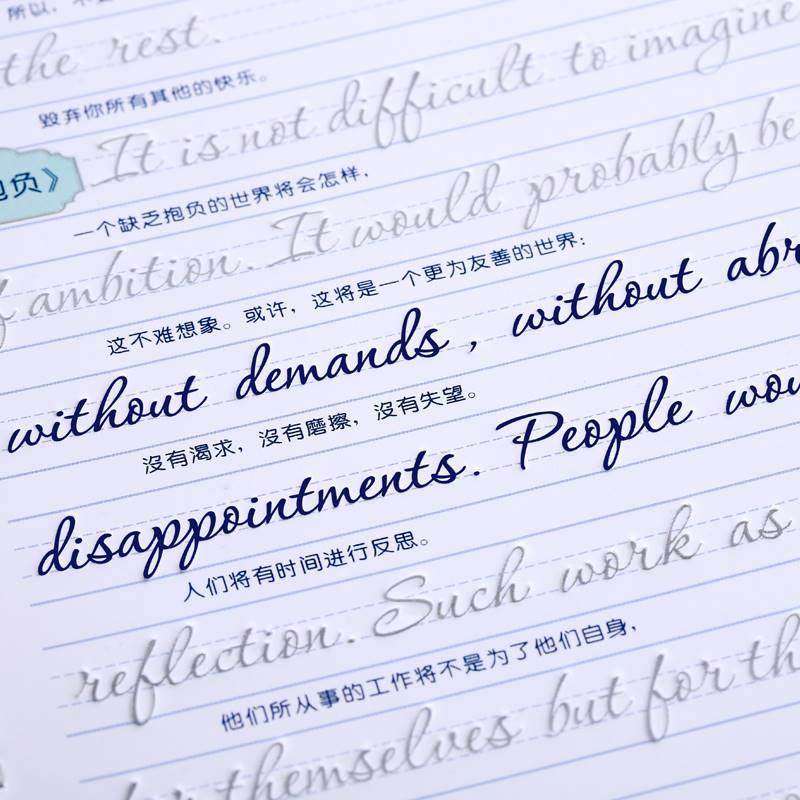 所以，不
the rest.
毁弃你所有其他的快乐。
It is not difficult to imagine
抱负》
一个缺乏抱负的世界将会怎样，
f ambition. It would probably be
这不难想象。或许，这将是一个更为友善的世界：
without demands, without abr
沒有渴求，沒有磨擦，沒有失望。
disappointments. People wou
人们将有时间进行反思。
reflection. Such work as
他们所从事的工作将不是为了他们自身，
for themselves but for th